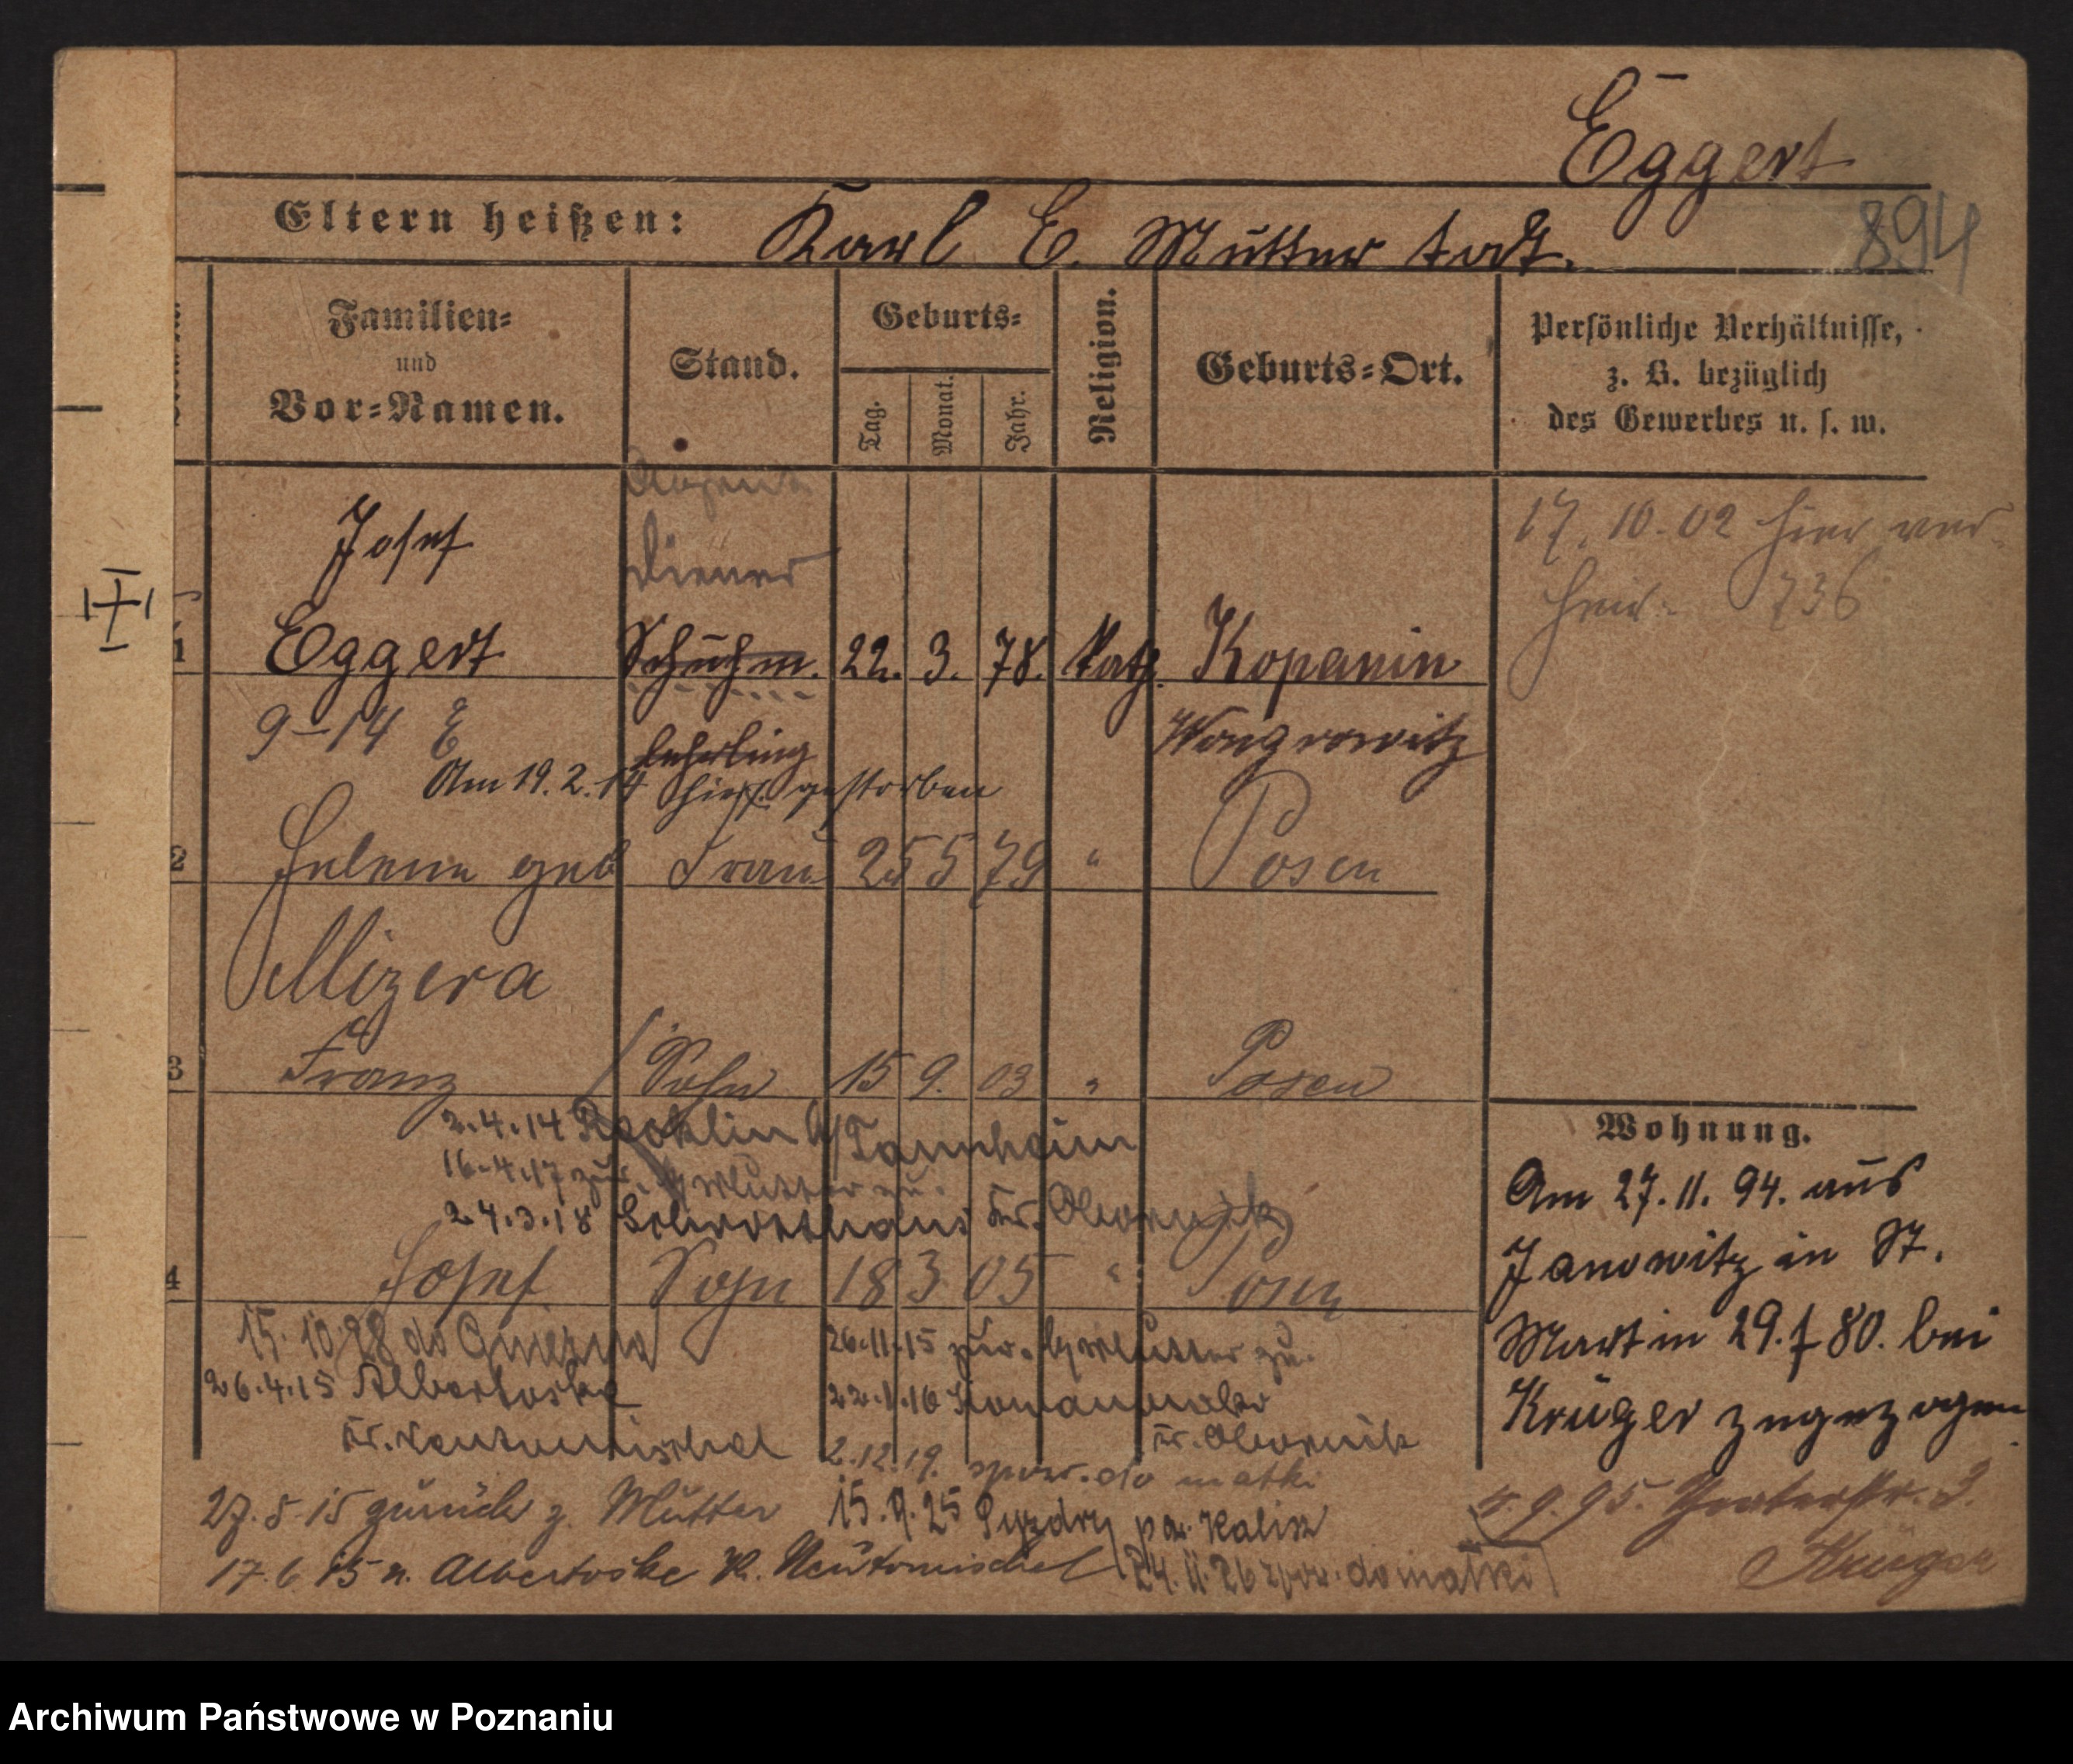 Eggert
Eltern heißen: Karl E. Mutter todt.
894
Familien- und Vor-Namen.
Stand.
Geburts-
Tag. Monat. Jahr.
Religion.
Geburts-Ort.
Persönliche Verhältnisse,
z. B. bezüglich
des Gewerbes u. s. w.
17. 10. 02 hier ver-
heir. 736
Josef
Diener
1 Eggert Schuhm. 22. 3. 78. kath. Kopanin
9-14 E lehrling Wongrowitz
Am 19. 2. 14 hier gestorben
2 Helene geb Frau 25 5 79 " Posen
Mizera
3 Franz Sohn 15 9. 03 " Posen
2.4.14 Tannheim
16.4.17 zur. Mutter zu.
24.3.18 Kr. Obornik
4 Josef Sohn 18 3 05 " Posen
15.10.28 do Gniezna
26.11.15 zur. Mutter zu.
26.4.15 Albertoske
22.1.16
Kr. Neutomischel
Kr. Obornik
2.12.19. spow. do matki
27.5.15 zurück z. Mutter
15.9.25 Pyzdry pow. Kalisz
17.6.15 n. Albertoske K. Neutomischel
24.11.26 spow. do matki
Wohnung.
Am 27. 11. 94. aus
Janowitz in St.
Martin 29. f 80. bei
Krüger zugezogen
9. 95. 3.
Krüger
Archiwum Państwowe w Poznaniu